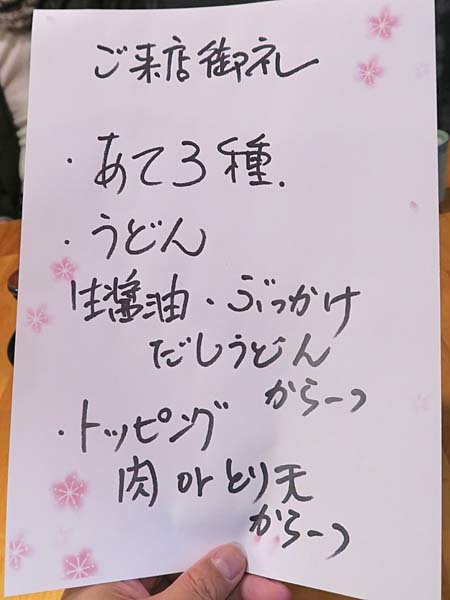 ご来店御礼
・あて3種.
・うどん
生醤油・ぶっかけ
だしうどん
から一つ
・トッピング
肉 or とり天
から一つ